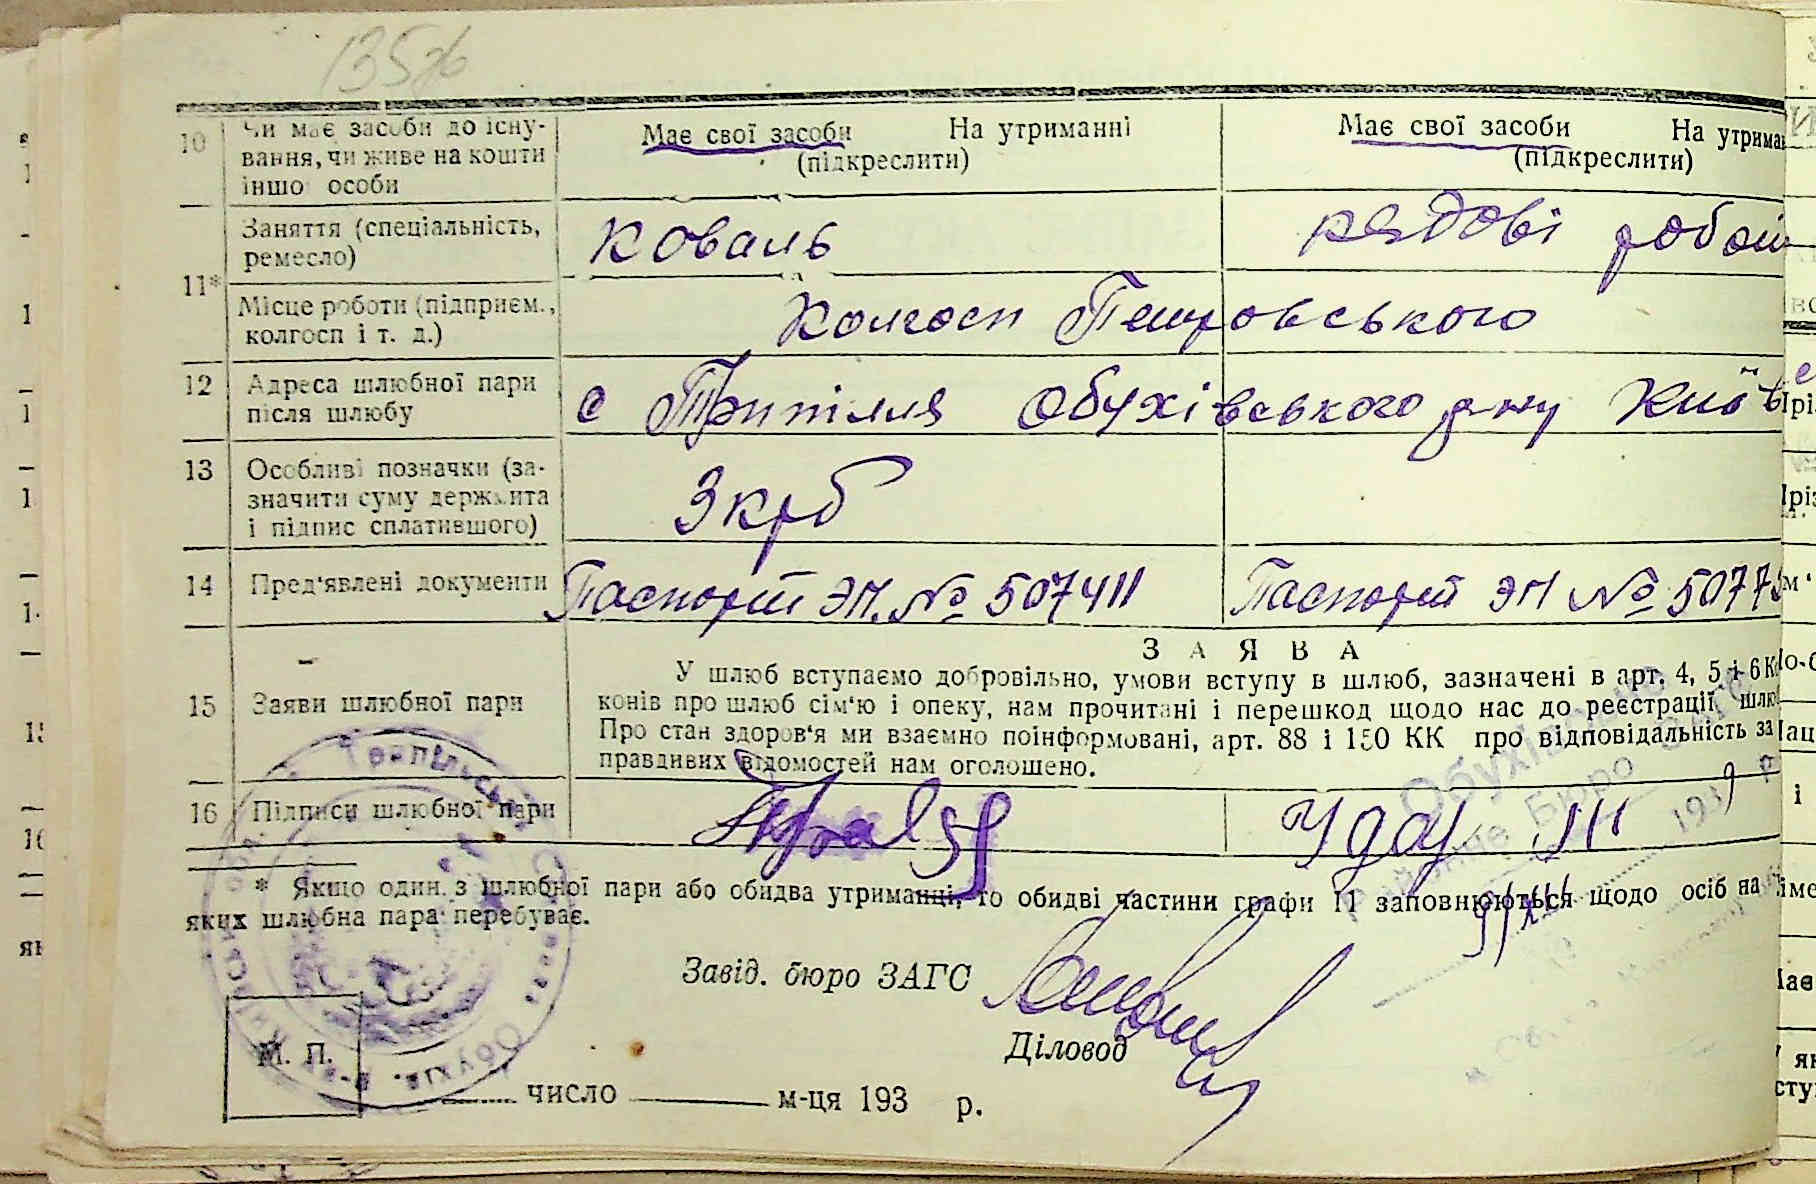 135зв
10 Чи має засоби до існу-
вання, чи живе на кошти
іншої особи
Має свої засоби На утриманні
(підкреслити)
Має свої засоби На утриман
(підкреслити)
11* Заняття (спеціальність,
ремесло)
Коваль
рядові робот
Місце роботи (підприєм.,
колгосп і т. д.)
Колгосп Петровського
12 Адреса шлюбної пари
після шлюбу
с Трипілля Обухівського р-ну Київ
13 Особливі позначки (за-
значити суму держмита
і підпис сплатившого)
3 крб
14 Пред'явлені документи
Паспорт ЭМ. № 507411
Паспорт ЭМ № 5077
15 Заяви шлюбної пари
ЗАЯВА
У шлюб вступаємо добровільно, умови вступу в шлюб, зазначені в арт. 4, 5 і 6 К
конів про шлюб сім'ю і опеку, нам прочитані і перешкод щодо нас до реєстрації шлю
Про стан здоров'я ми взаємно поінформовані, арт. 88 і 150 КК про відповідальність за
правдивих відомостей нам оголошено.
16 Підписи шлюбної пари
* Якщо один з шлюбної пари або обидва утриманці, то обидві частини графи 11 заповнюються щодо осіб на
яких шлюбна пара перебуває.
Обухівське
Районне Бюро ЗАГС
193
Завід. бюро ЗАГС
Діловод
М. П.
число м-ця 193 р.